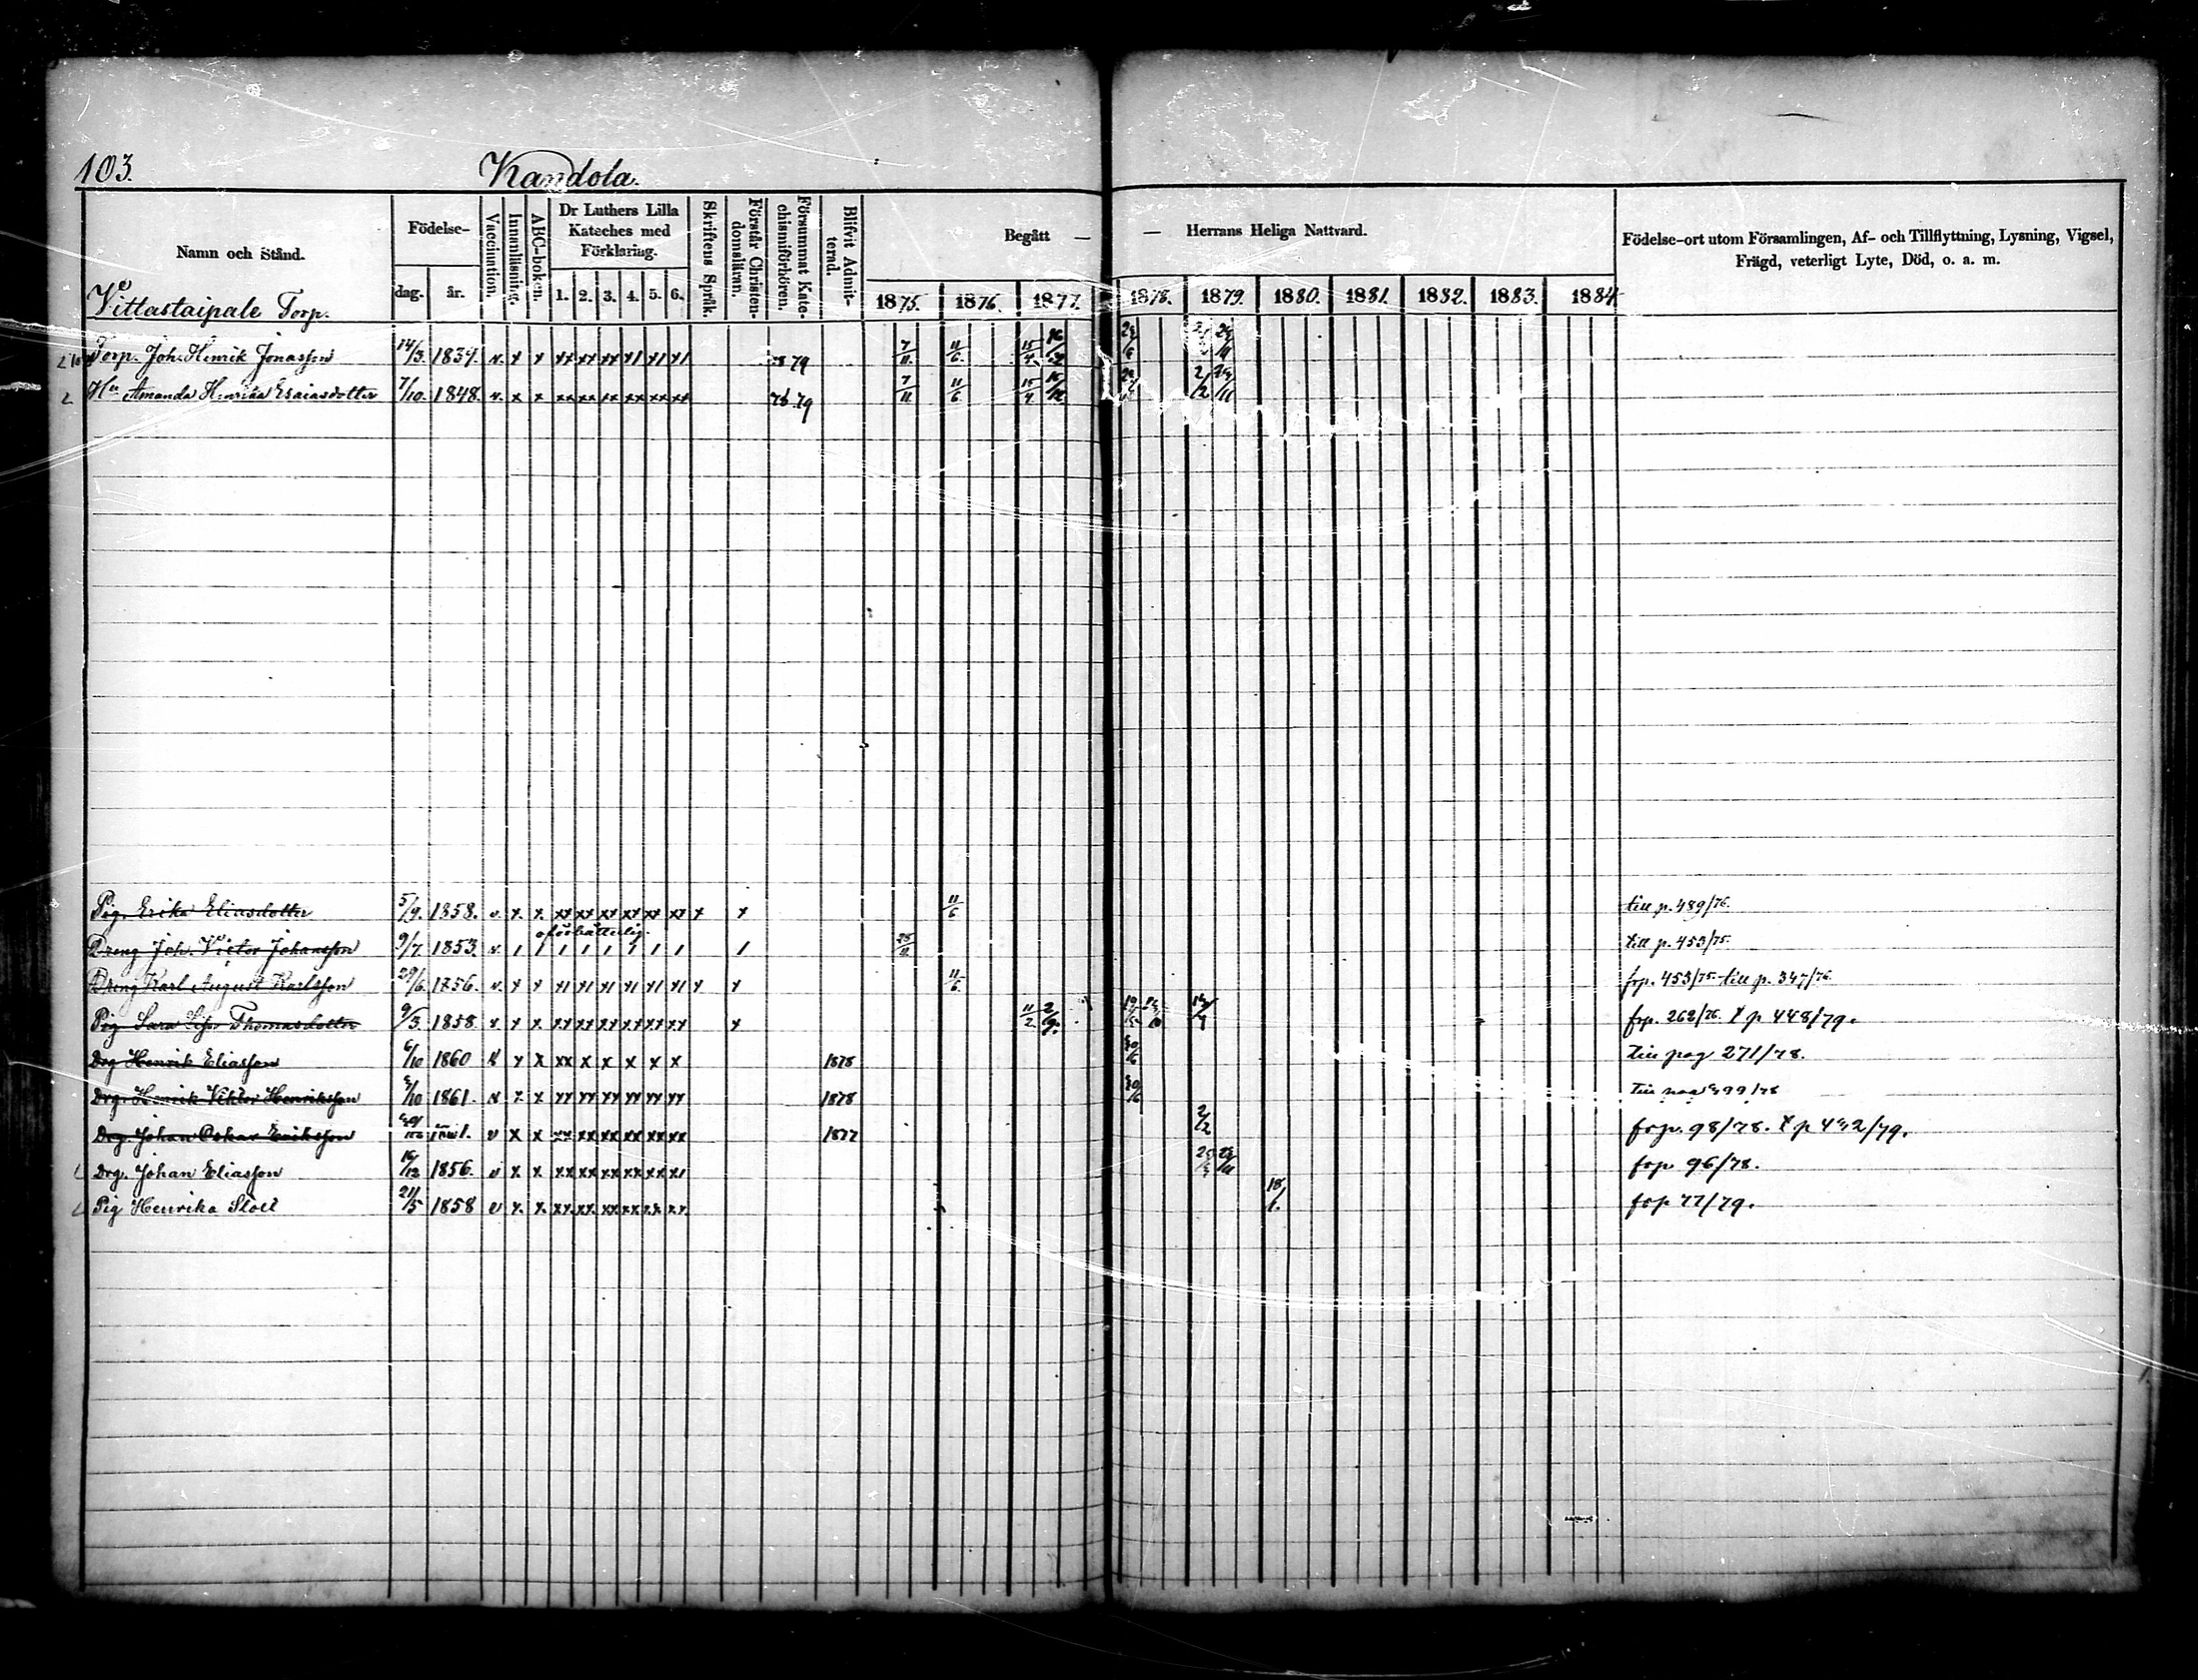 103. Kandola.
Namn och Stånd. Födelse- dag. år. Vaccination. Innanläsning. ABC-boken. Dr Luthers Lilla Kateches med Förklaring. 1. 2. 3. 4. 5. 6. Skriftens Språk. Förstår Christendomsläran. Försummat Katechismiförhören. Blifvit Admitterad. Begått — — Herrans Heliga Nattvard. 1875. 1876. 1877. 1878. 1879. 1880. 1881. 1882. 1883. 1884 Födelse-ort utom Församlingen, Af- och Tillflyttning, Lysning, Vigsel, Frägd, veterligt Lyte, Död, o. a. m.
Vittastaipale Torp.
Torp. Joh. Henrik Jonasson 14/3. 1834. v. x x xx xx xx x1 x1 x1 79 7/11. 11/6. 15/4
Hu Amanda Henrika Esaiasdotter 7/10. 1848. v. x x xx xx xx xx xx xx 76 79 7/11 11/6 15/4 2/2
Pig. Erika Eliasdotter 5/9. 1858. v. x. x. xx xx xx xx xx xx x x 11/6 till p. 489/76.
oförbätterlig.
Dreng Joh. Victor Johansson 9/7. 1853. v. 1 1 1 1 1 1 1 1 1 28/11 till p. 453/75.
Dreng Karl August Karlsson 29/6. 1856. v. x x x1 x1 x1 x1 x1 x1 x x 11/6. frp. 453/75 till p. 347/76.
Pig Sara Lisa Thomasdotter 9/3. 1858. v. x x. xx xx xx xx xx xx x 11/2. 2/9. frp. 262/76. X p 448/79.
Drg Henrik Eliasson 6/10 1860 v x x xx x x x x x 1878 30/6 till pag 271/78.
Drg. Henrik Viktor Henriksson /10 1861. v x x xx xx xx xx xx xx 1878 30/6 till pag 499/78
Drg. Johan Oskar Eriksson v x x xx xx xx xx xx xx 1877 2/2 frp. 98/78. X p 442/79.
Drg. Johan Eliasson /12 1856. v x x xx xx xx xx xx x1 frp 96/78.
Pig Henrika Slöel 21/5 1858 v x. x. xx. xx. xx xx xx. xx. 18/1. frp 77/79.